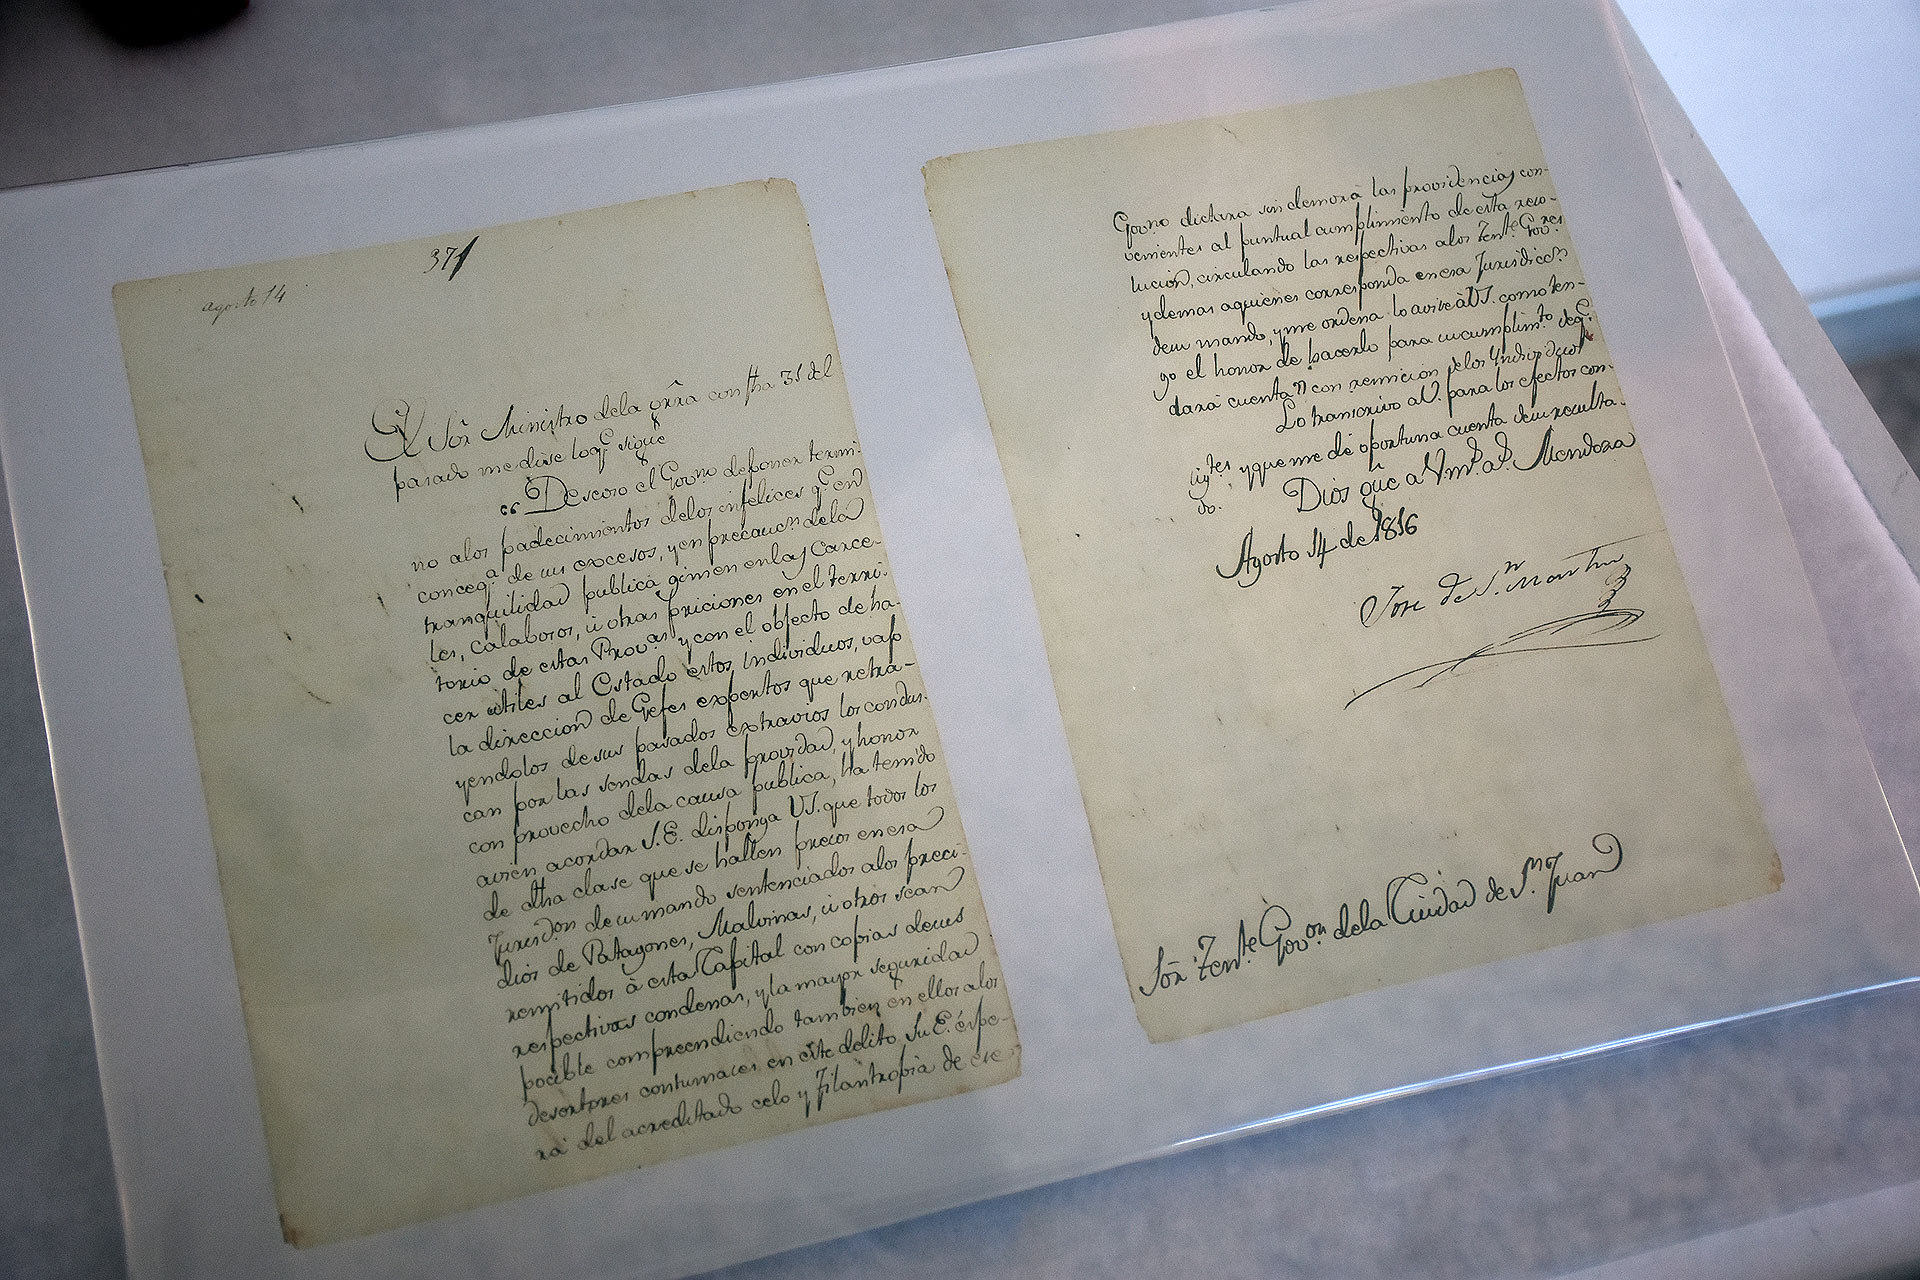 371
agosto 14
El Sõr Ministro dela grrã con fha 31 del
pasado me dise loq.e sigue
"Deseoso el Gov.no deponer termi-
no alos padecimientos delos infelices q.e en
conseq.a de sus excesos, y en precauc.n dela
tranquilidad publica gimen en las Carce-
les, calabosos, ú otras priciones en el terri-
torio de estas Prov.as y con el objecto de ha-
cer utiles al Estado estos individuos, vajo
la direccion de Gefes expertos que retra-
yendolos de sus pasados extravios los condus-
can por las sendas dela providad, y honor
con provecho dela causa publica, ha tenido
avien acordar S.E. disponga VS. que todos los
de dha clase que se hallen presos en esa
Jurisd.on de su mando sentenciados alos preci-
dios de Patagones, Malvinas, ú otros sean
remitidos à esta Capital con copias de sus
respectivas condenas, y la mayor seguridad
pocible compreendiendo tambien en ellos alos
desertores contumaces en este delito. Su E. éspe-
ra del acreditado celo y Filantropia de ese
Gov.no dictara sin demora las providencias con-
venientes al puntual cumplimiento de esta reso-
lucion, circulando las respectivas alos Ten.tes Gov.res
y demas aquienes corresponda en esa Jurisdicc.n
de su mando, y me ordena lo avise à VS. como ten-
go el honor de hacerlo para su cumplim.to deq.e
dará cuenta con remicion delos Yndividuos"
Lo transcrivo a V. para los efectos con-
sig.tes y que me dé oportuna cuenta de su resulta-
do.
Dios gũe a V. m.s a.s Mendoza
Agosto 14 de 1816
Jose de S.n Martin
Sõr Ten.te Gov.on dela Ciudad de S.n Juan